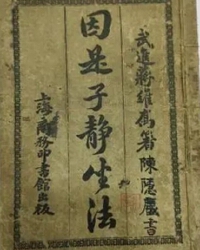 武進蔣維喬著 陳隱廬書
因是子靜坐法
上海商務印書館出版